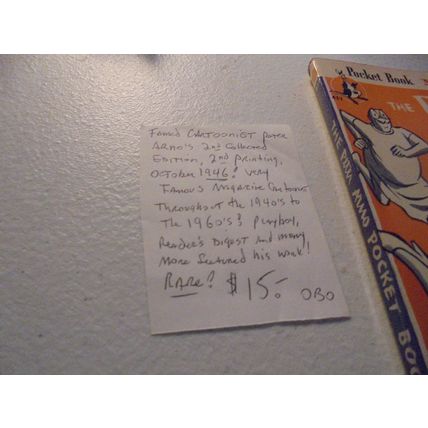 FAMED CARTOONIST PETER
ARNO'S 2nd Collected
EDITION, 2nd printing,
OCTOBER 1946! very
FAMOUS MAGAZINE CARTOONS
THROUGHOUT the 1940's to
The 1960's! Playboy,
Reader's Digest and many
More featured his work!
RARE! $15.- OBO
Pocket Book
THE
THE PETER ARNO POCKET BOO